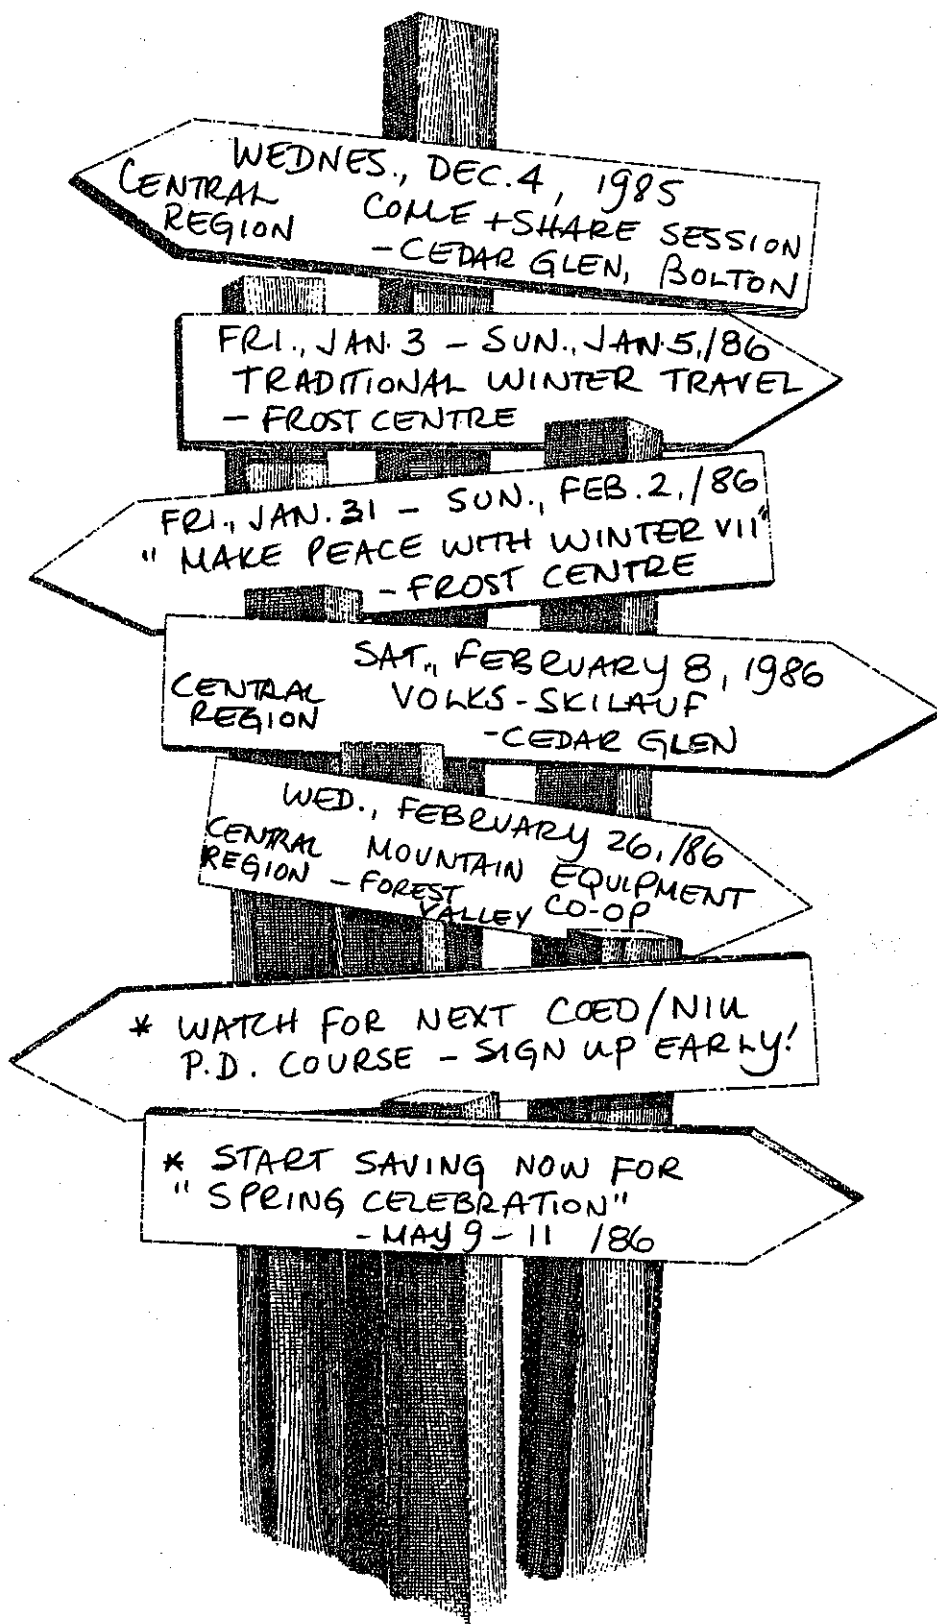 WEDNES., DEC. 4, 1985
CENTRAL REGION COME + SHARE SESSION
- CEDAR GLEN, BOLTON
FRI., JAN. 3 - SUN., JAN. 5, /86
TRADITIONAL WINTER TRAVEL
- FROST CENTRE
FRI., JAN. 31 - SUN., FEB. 2, /86
"MAKE PEACE WITH WINTER VII"
- FROST CENTRE
SAT., FEBRUARY 8, 1986
CENTRAL REGION VOLKS-SKILAUF
- CEDAR GLEN
WED., FEBRUARY 26, /86
CENTRAL REGION MOUNTAIN EQUIPMENT CO-OP
- FOREST VALLEY
* WATCH FOR NEXT COED/NIU
P.D. COURSE - SIGN UP EARLY!
* START SAVING NOW FOR
"SPRING CELEBRATION"
- MAY 9 - 11 /86